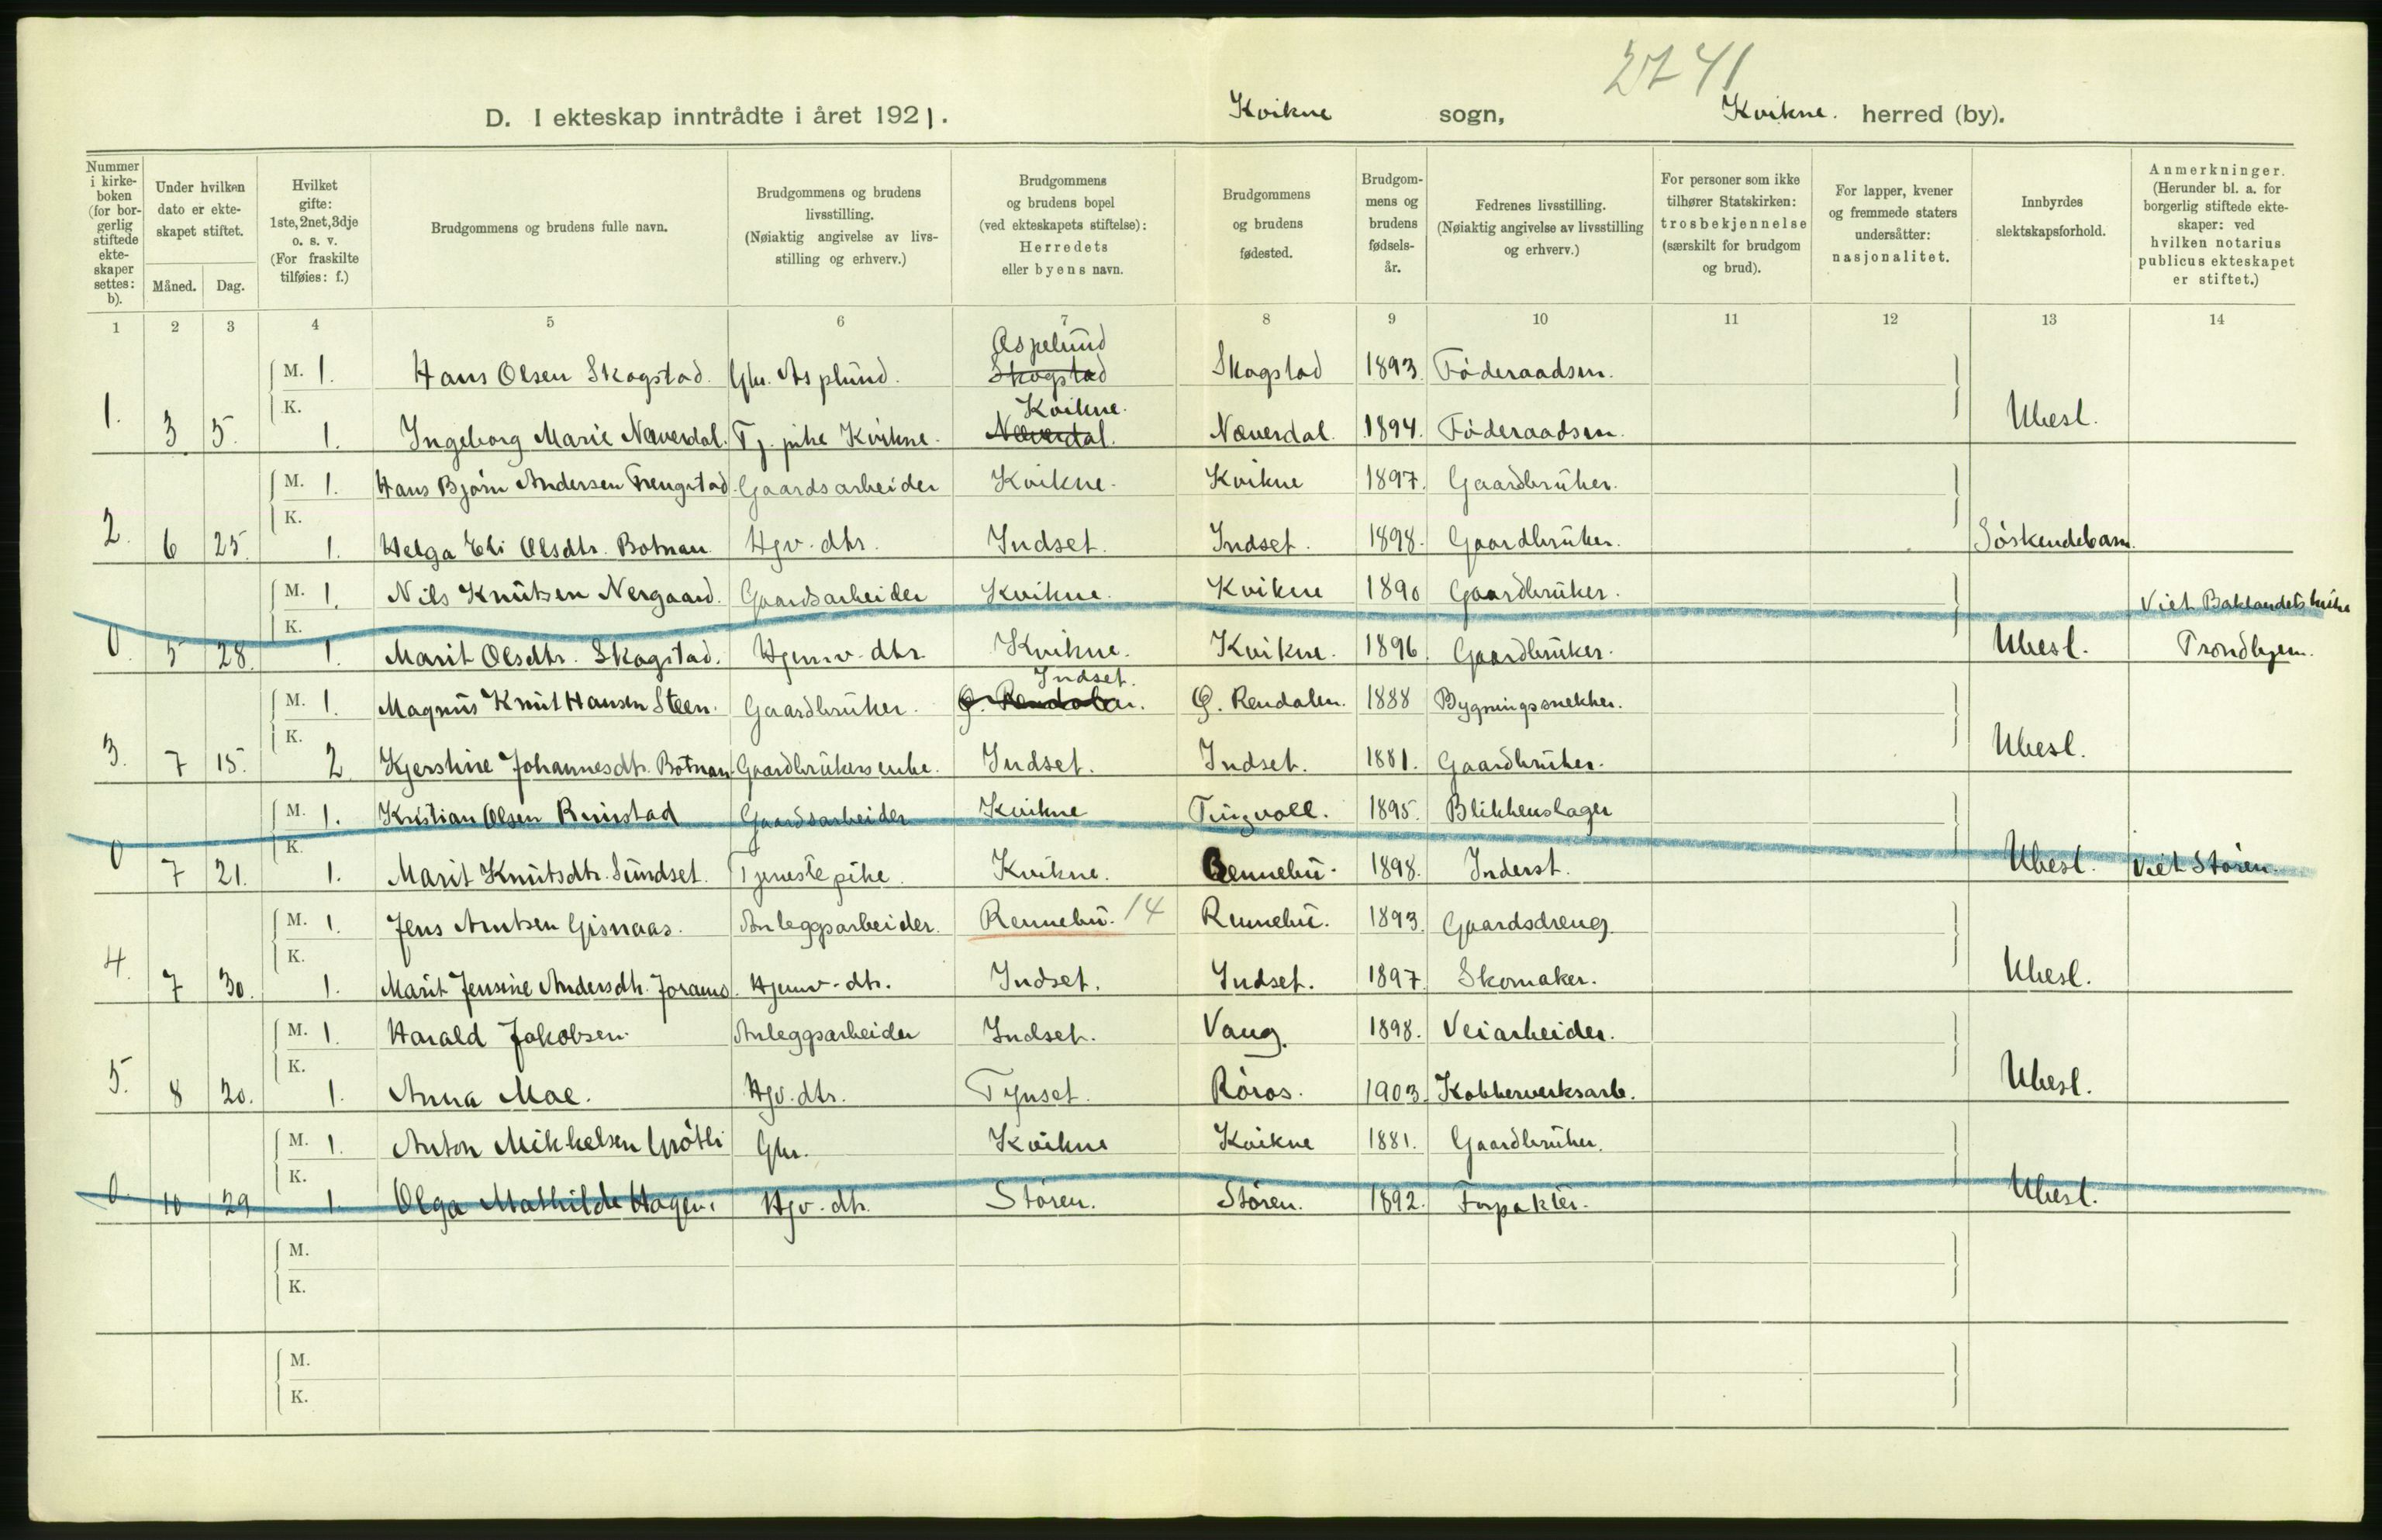 2741
D. I ekteskap inntrådte i året 1921. Kvikne sogn, Kvikne. herred (by).
Nummer i kirkeboken (for borgerlig stiftede ekteskaper settes: b).
Under hvilken dato er ekteskapet stiftet.
Måned. Dag.
Hvilket gifte: 1ste, 2net, 3dje o. s. v. (For fraskilte tilføies: f.)
Brudgommens og brudens fulle navn.
Brudgommens og brudens livsstilling. (Nøiaktig angivelse av livsstilling og erhverv.)
Brudgommens og brudens bopel (ved ekteskapets stiftelse): Herredets eller byens navn.
Brudgommens og brudens fødested.
Brudgommens og brudens fødselsår.
Fedrenes livsstilling. (Nøiaktig angivelse av livsstilling og erhverv.)
For personer som ikke tilhører Statskirken: trosbekjennelse (særskilt for brudgom og brud).
For lapper, kvener og fremmede staters undersåtter: nasjonalitet.
Innbyrdes slektskapsforhold.
Anmerkninger. (Herunder bl. a. for borgerlig stiftede ekteskaper: ved hvilken notarius publicus ekteskapet er stiftet.)
1 2 3 4 5 6 7 8 9 10 11 12 13 14
Aspelund
M. 1. Hans Olsen Skogstad. Gbr. Asplund. Skogstad Skogstad 1893. Föderaadsm.
K. Kvikne.
1. 3 5. 1. Ingeborg Marie Næverdal. Tj. pike Kvikne. Næverdal. Næverdal. 1894. Föderaadsm. Ubesl.
M. 1. Hans Bjørn Andersen Trengstad. Gaardsarbeider Kvikne. Kvikne 1897. Gaardbruker.
K.
2. 6 25. 1. Helga Eli Olsdtr. Botnan. Hjv. dtr. Indset. Indset. 1898. Gaardbruker. Söskendebarn.
M. 1. Nils Knutsen Nergaard. Gaardsarbeider Kvikne. Kvikne 1890 Gaardbruker. Viet Baklandets kirke
K.
0. 5 28. 1. Marit Olsdtr. Skogstad. Hjemv. dtr. Kvikne. Kvikne. 1896. Gaardbruker. Ubesl. Trondhjem.
Indset.
M. 1. Magnus Knut Hansen Steen. Gaardbruker. Ø. Rendalen. Ø. Rendalen. 1888 Bygningssnekker.
K.
3. 7 15. 2 Kjerstine Johannesdtr. Botnan. Gaardbrukers enke. Indset. Indset. 1881. Gaardbruker. Ubesl.
M. 1. Kristian Olsen Rimstad Gaardsarbeider Kvikne Tingvoll. 1895. Blikkenslager
K.
0 7 21. 1. Marit Knutsdtr. Sundset. Tjenestepike. Kvikne. Rennebu. 1898. Inderst. Ubesl. Viet Støren.
M. 1. Jens Arntsen Gisnaas. Anleggsarbeider. Rennebu. 14 Rennebu. 1893. Gaardsdreng
K.
4. 7 30. 1. Marit Jensine Andersdtr. Joramo. Hjemv. dtr. Indset. Indset. 1897 Skomaker. Ubesl.
M. 1. Harald Jakobsen. Anleggsarbeider Indset. Vang. 1898. Veiarbeider.
K.
5. 8 20. 1. Anna Moe. Hjv. dtr. Tynset. Röros. 1903. Kobberverksarb. Ubesl.
M. 1. Anton Mikkelsen Grötli Gbr. Kvikne Kvikne 1881. Gaardbruker.
K.
0. 10 29 1. Olga Mathilde Hagen. Hjv. dtr. Stören. Stören. 1892. Forpakter. Ubesl.
M.
K.
M.
K.